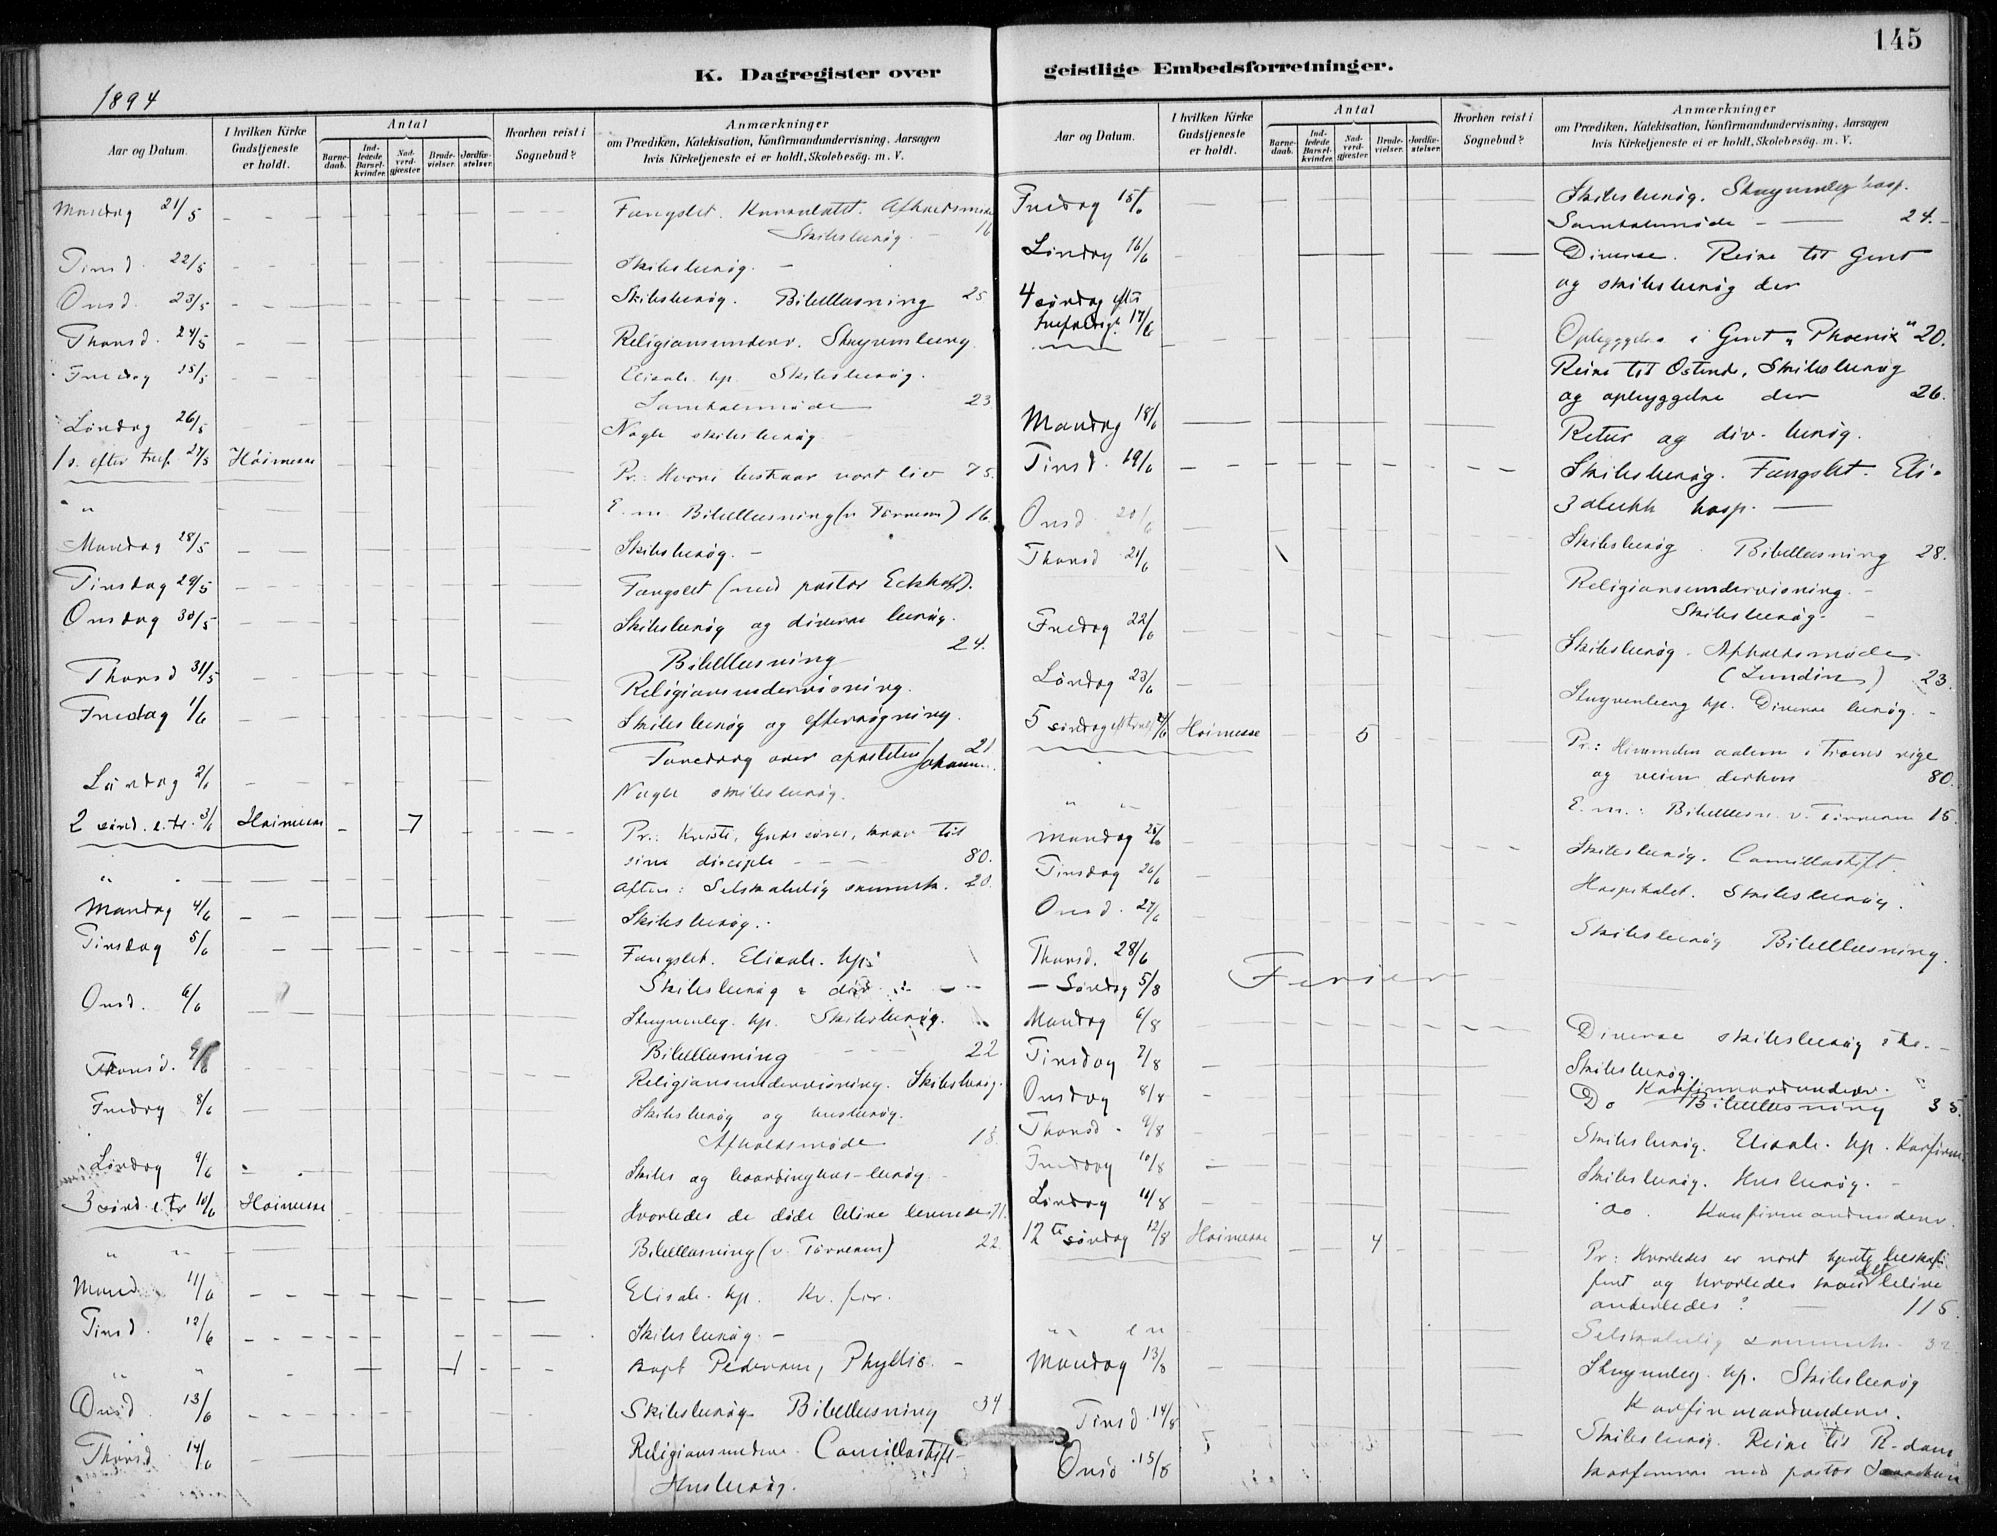 145
K. Dagregister over geistlige Embedsforretninger.
1894
Aar og Datum.
I hvilken Kirke Gudstjeneste er holdt.
Antal
Barnedaab.
Indledede Barselkvinder.
Nadverdgjæster.
Brudevielser.
Jordfæstelser.
Hvorhen reist i Sognebud?
Anmærkninger
om Prædiken, Katekisation, Konfirmandundervisning, Aarsagen
hvis Kirketjeneste ei er holdt, Skolebesög. m. V.
Mandag 21/5 Fængslet. Konsulatet. Afholdsmøde
Skibsbesøg. 16
Tirsd. 22/5 Skibsbesøg.
Onsd. 23/5 Skibsbesøg. Bibellæsning 25
Thorsd. 24/5 Religionsunderv. Stuyvenberg.
Fredag 25/5 Elisab. hp. Skibsbesøg.
Samtalemøde 23
Lørdag 26/5 Nogle skibsbesøg
1 s. efter tref. 27/5 Høimesse Pr.: Hvori bestaar vort liv 75.
" E. m. Bibellæsning (v. Tørnesen) 16.
Mandag 28/5 Skibsbesøg.
Tirsdag 29/5 Fængslet (med pastor Eckhoff).
Onsdag 30/5 Skibsbesøg og diverse besøg.
Bibellæsning 24.
Thorsd 31/5 Religionsundervisning.
Fredag 1/6 Skibsbesøg og eftersøgning.
Foredrag over apostelen Johannes. 21
Lørdag 2/6 Nogle skibsbesøg.
2 sønd. e. tr. 3/6 Høimesse 7 Pr.: Kristi, Guds søns, krav til
sine disciple 80.
" Aften: Selskabelig sammenk. 20.
Mandag 4/6 Skibsbesøg.
Tirsdag 5/6 Fængslet. Elisab. hp.
Skibsbesøg
Onsd. 6/6 Stuyvenbg. hp. Skibsbesøg.
Bibellæsning 22
Thorsd. 7/6 Religionsundervisning. Skibsbesøg.
Fredag 8/6 Skibsbesøg og husbesøg.
Afholdsmøde 18
Lørdag 9/6 Skibs og boardinghus-besøg.
3 sønd. e. Tr 10/6 Høimesse Hvorledes de døde blive levende 71.
" " Bibellæsning (v. Tørnesen) 22.
Mand. 11/6 Elisab. hp. Kv. for.
Tirsd. 12/6 Skibsbesøg.
" " 1 Kapt Pedersen, Phyllis.
Onsd. 13/6 Skibsbesøg. Bibellæsning 34
Thorsd. 14/6 Religionsunderv. Camillastift
Husbesøg.
Aar og Datum.
I hvilken Kirke Gudstjeneste er holdt.
Antal
Barnedaab.
Indledede Barselkvinder.
Nadverdgjæster.
Brudevielser.
Jordfæstelser.
Hvorhen reist i Sognebud?
Anmærkninger
om Prædiken, Katekisation, Konfirmandundervisning, Aarsagen
hvis Kirketjeneste ei er holdt, Skolebesög. m. V.
Fredag 15/6 Skibsbesøg. Stuyvenbg hosp.
Samtalemøde 24.
Lørdag 16/6 Diverse. Reise til Gent
og skibsbesøg der
4 søndag efter trefoldigh. 17/6 Opbyggelse i Gent "Phoenix" 20.
Reise til Ostende, Skibsbesøg
og opbyggelse der 26.
Mandag 18/6 Retur og div. besøg.
Tirsd. 19/6 Skibsbesøg. Fængslet. Eli-
sabeth hosp.
Onsd. 20/6 Skibsbesøg. Bibellæsning 28.
Thorsd 21/6 Religionsundervisning.
Skibsbesøg.
Fredag 22/6 Skibsbesøg. Afholdsmøde
(Lundin) 23.
Lørdag 23/6 Stuyvenberg hp. Diverse besøg.
5 søndag 24/6 Høimesse 5 Pr.: Himmelen aaben i troens rige
og veien derhen 80.
" " E. m.: Bibellæsn. v. Tørnesen 15.
Mandag 25/6 Skibsbesøg. Camillastift.
Tirsdag 26/6 Hospitalet. Skibsbesøg.
Onsd. 27/6 Skibsbesøg Bibellæsning.
Thorsd. 28/6
– Søndag 5/8 Ferier
Mandag 6/8 Diverse skibsbesøg etc.
Tirsdag 7/8 Skibsbesøg.
Konfirmandunderv.
Onsdag 8/8 Do Bibellæsning 35.
Thorsd. 9/8 Skibsbesøg. Elisab. hp. Konfirm.
Fredag 10/8 Skibsbesøg. Husbesøg.
Lørdag 11/8 do. Konfirmandunderv.
12te søndag 12/8 Høimesse 4 Pr: Hvorledes er vort hjerte beskaf-
fent og hvorledes kan det blive
anderledes? 115.
" " Selskabelig sammenk. 32
Mandag 13/8 Stuyvenbg. hp. Skibsbesøg
Konfirmandunderv.
Tirsd. 14/8 Skibsbesøg. Reise til R-dam
Onsd. 15/8 med pastor